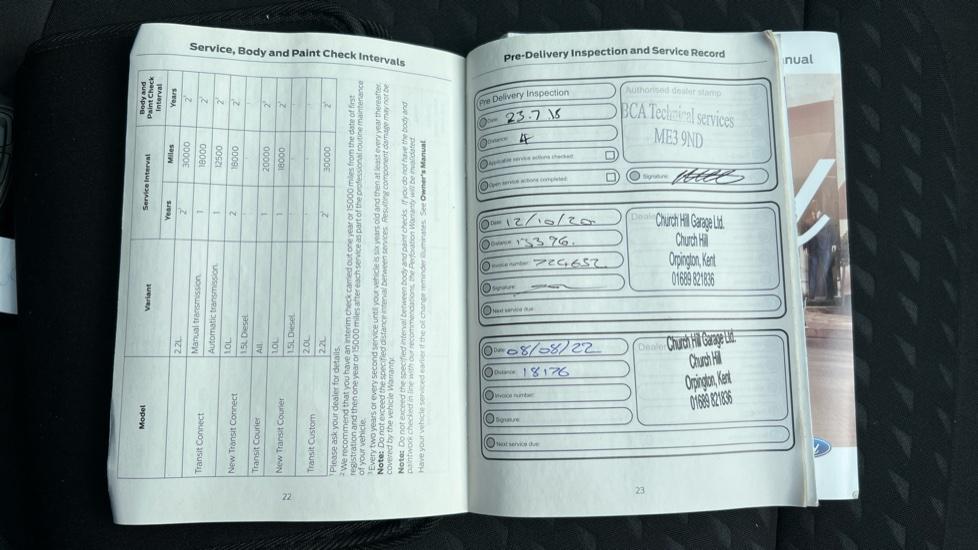 Service, Body and Paint Check Intervals
Model Variant Service Interval Body and Paint Check Interval
Years Miles Years
2.2L 2¹ 30000 2³
Transit Connect Manual transmission 1 18000 2³
Automatic transmission 1 12500 2³
New Transit Connect 1.0L 2 18000 2³
1.5L Diesel - - -
Transit Courier All 1 20000 2³
New Transit Courier 1.0L 1 18000 2³
1.5L Diesel - - -
Transit Custom 2.0L - - -
2.2L 2² 30000 2³
¹ Please ask your dealer for details.
² We recommend that you have an interim check carried out one year or 15000 miles from the date of first
registration and then one year or 15000 miles after each service as part of the professional routine maintenance
of your vehicle.
³ Every two years or every second service until your vehicle is six years old and then at least every year thereafter.
Note: Do not exceed the specified distance interval between services. Resulting component damage may not be
covered by the vehicle Warranty.
Note: Do not exceed the specified interval between body and paint checks. If you do not have the body and
paintwork checked in line with our recommendations, the Perforation Warranty will be invalidated.
Have your vehicle serviced earlier if the oil change reminder illuminates. See Owner's Manual.
22
Pre-Delivery Inspection and Service Record
Pre Delivery Inspection
Date: 23.7.18
Distance: 4
Applicable service actions checked:
Open service actions completed:
Authorised dealer stamp
BCA Technical services
ME3 9ND
Signature:
Date: 12/10/20
Distance: 13396.
Invoice number: 724652
Signature:
Next service due:
Dealer
Church Hill Garage Ltd.
Church Hill
Orpington, Kent
01689 821836
Date: 08/08/22
Distance: 18176
Invoice number:
Signature:
Next service due:
Dealer
Church Hill Garage Ltd.
Church Hill
Orpington, Kent
01689 821836
23
nual